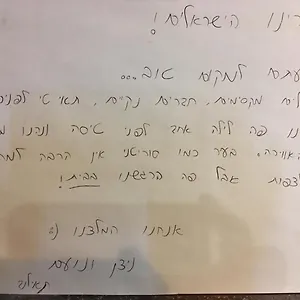 רינו הישראלים!
עתם למקום טוב...
לים מקסימים, חברים נקיים, תאי טי לפניכם
נו פה לילה אחד לפני טיסה ונהנו מ
אווירה. בעיר כמו סוריטני אין הרבה למר
לצפות אבל פה הרגשנו בבית!
אנחנו המלצנו (:
ניצן ונועם
תאילנד